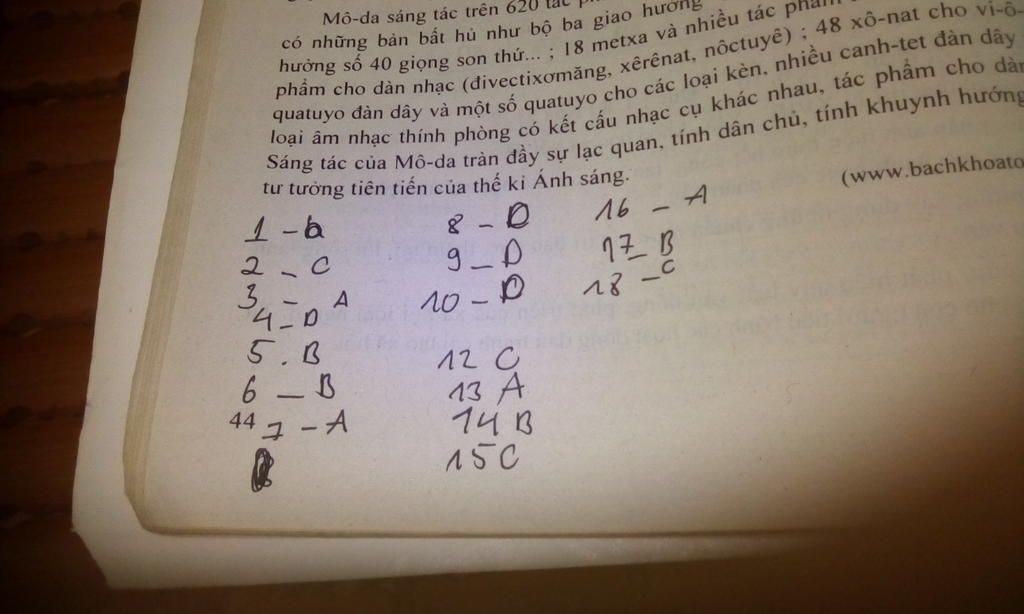 Mô-da sáng tác trên 620 tác
có những bản bất hủ như bộ ba giao hưởng
hưởng số 40 giọng son thứ... ; 18 metxa và nhiều tác phẩm
phẩm cho dàn nhạc (đivectixơmăng, xêrênat, nôctuyê) ; 48 xô-nat cho vi-ô-
quatuyo đàn dây và một số quatuyo cho các loại kèn, nhiều canh-tet đàn dây
loại âm nhạc thính phòng có kết cấu nhạc cụ khác nhau, tác phẩm cho dàn
Sáng tác của Mô-da tràn đầy sự lạc quan, tính dân chủ, tính khuynh hướng
tư tưởng tiên tiến của thế kỉ Ánh sáng.
(www.bachkhoato
1 - b
2 - C
3 - A
4 - D
5 . B
6 - B
44 7 - A
8 - D
9 - D
10 - D
12 C
13 A
14 B
15 C
16 - A
17 - B
18 - C